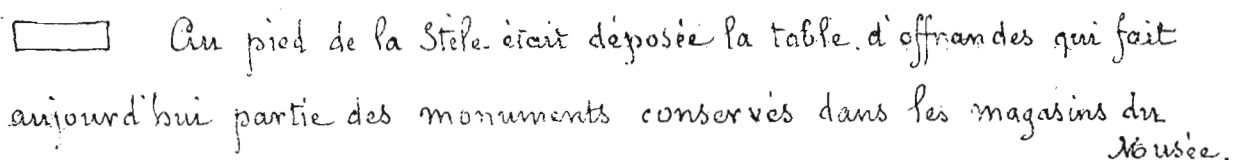 Au pied de la Stèle était déposée la table d'offrandes qui fait
aujourd'hui partie des monuments conservés dans les magasins du
Musée.